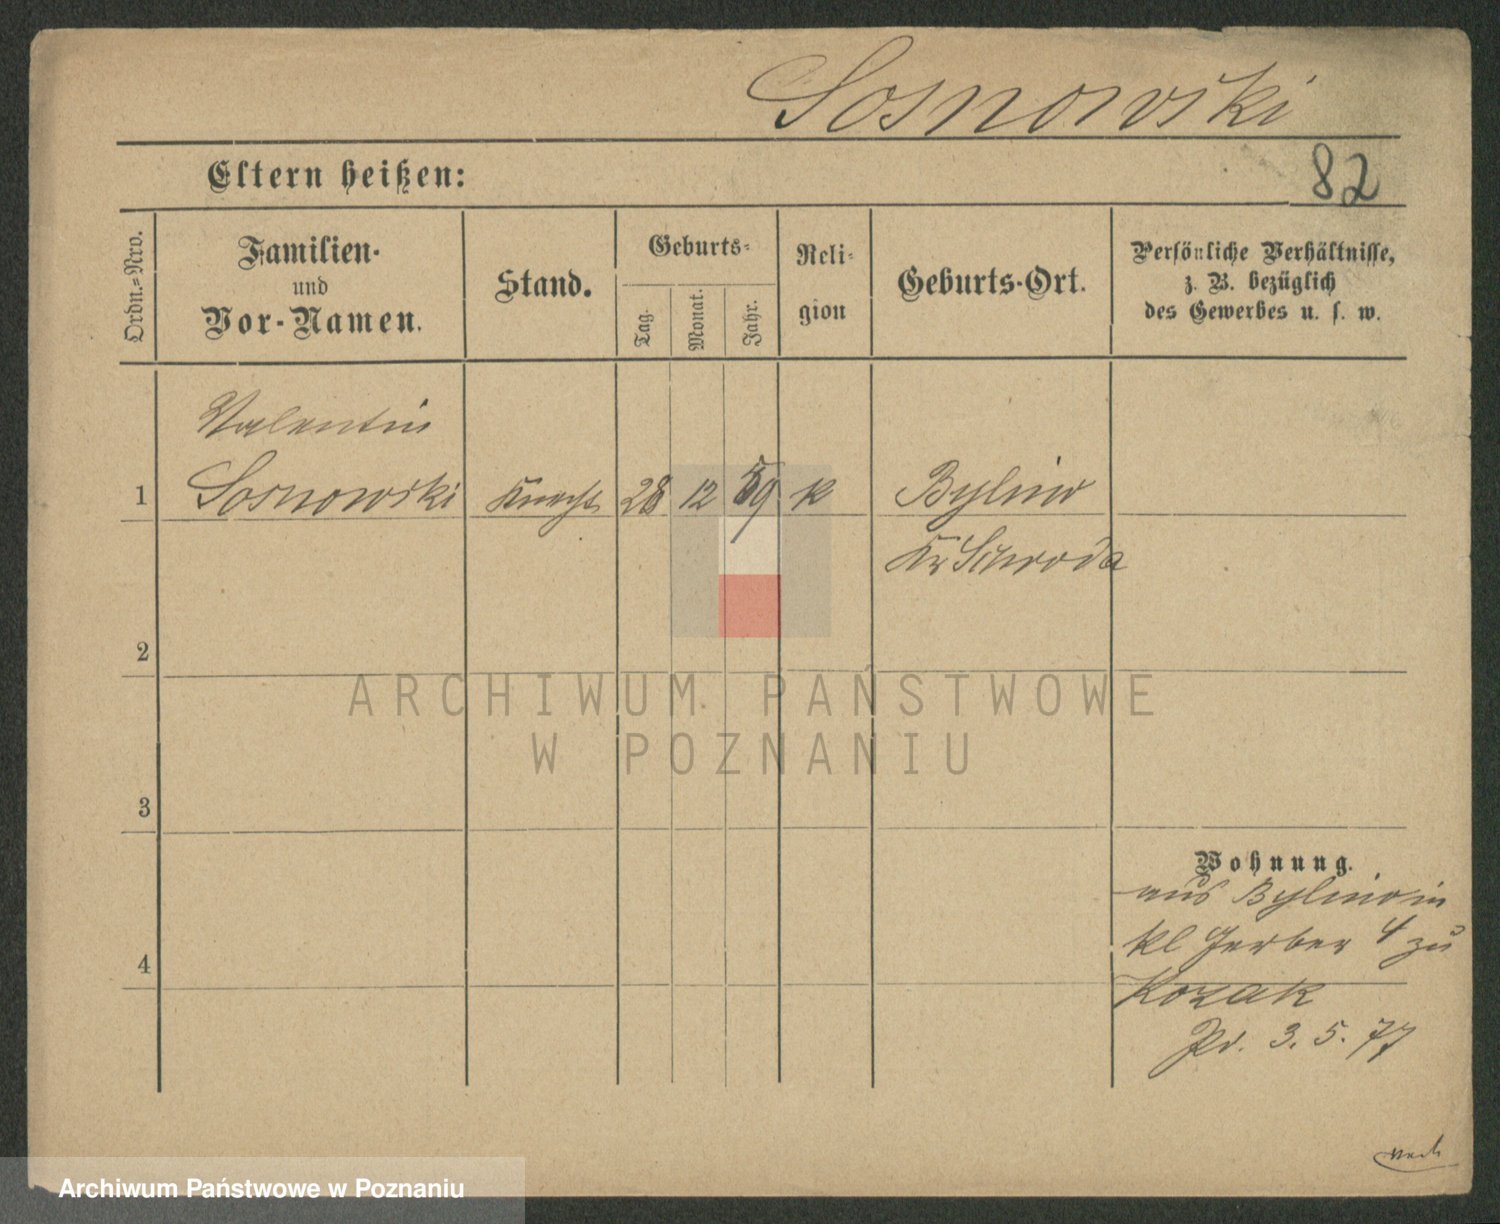 Sosnowski
Eltern heißen:
82
Ordn.=Nro.
Familien-
und
Vor-Namen.
Stand.
Geburts-
Tag.
Monat.
Jahr.
Reli-
gion
Geburts-Ort.
Persönliche Verhältnisse,
z. B. bezüglich
des Gewerbes u. s. w.
Valentin
1 Sosnowski Knecht 28 12 59 k Bylino
Kr Schroda
2
ARCHIWUM PAŃSTWOWE
W POZNANIU
3
Wohnung.
aus Bylino in
kl Gerber 4 zu
4
Kozak
Pr. 3. 5. 77
Archiwum Państwowe w Poznaniu